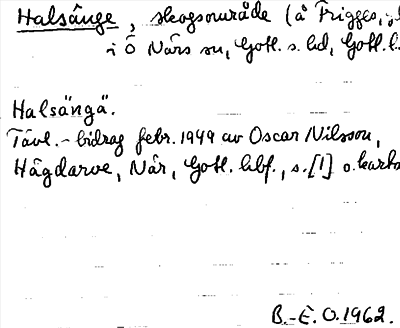 Halsänge, skogsområde (å Frigges,
i Ö När sn, Gotl. s. hd, Gotl. l.
Halsängä.
Tävl.-bidrag febr. 1949 av Oscar Nilsson,
Hägdarve, När, Gotl. hbf., s. [1] o. karta
B.-E. O. 1962.